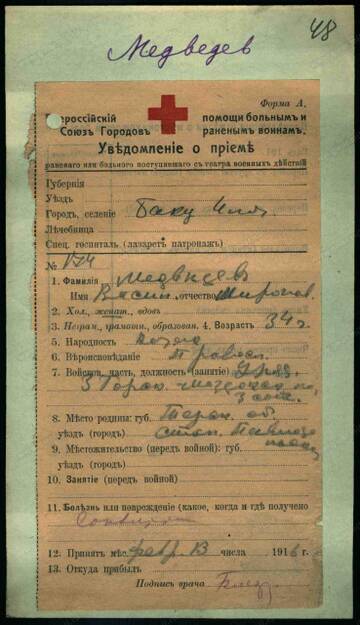 48
Медведев
Форма А.
Всероссійскій помощи больнымъ и
Союзъ Городовъ раненымъ воинамъ.
Увѣдомленіе о пріемѣ
раненаго или больного поступившаго съ театра военныхъ дѣйствій
Губернія
Уѣздъ
Городъ, селеніе Баку
Лѣчебница
Спец. госпиталь (лазаретъ патронажъ)
№ 174
1. Фамилія Медвѣдевъ
Имя отчество Миронов.
2. Хол., женат., вдовъ
3. Неграм., грамотн., образован. 4. Возрастъ 34 г.
5. Народность
6. Вѣроисповѣданіе Правос.
7. Войсков. часть, должность (занятіе) Уряд.
3 сот.
8. Мѣсто родины: губ. Терск. об.
уѣздъ (городъ) стан.
9. Мѣстожительство (передъ войной): губ.
уѣздъ (городъ)
10. Занятіе (передъ войной)
11. Болѣзнь или поврежденіе (какое, когда и гдѣ получено
12. Принятъ мѣс. февр. 13 числа 1916 г.
13. Откуда прибылъ
Подпись врача